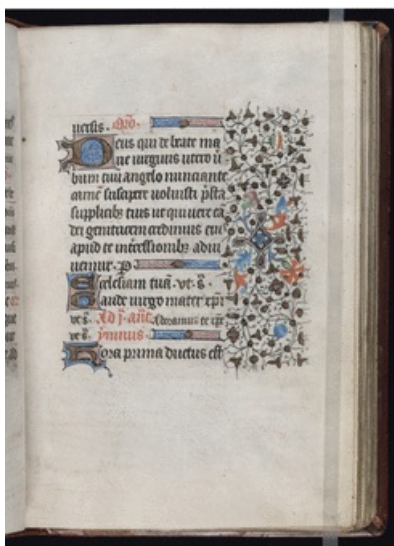 uersis. Oro.
Deus qui de beate ma
rie uirginis utero u
bum tuu angelo nunciante
carne suscipere uoluisti psta
supplicibz tuis ut qui uere ea
dei genitricem credimus eius
apud te intercessionibz adiu
uemur. P
Ecclesiam tua. ut. s.
Gaude uirgo mater xpi
ut s. Ad j. ant. Adoramus te xpe
ut s. ymnus.
Hora prima ductus est